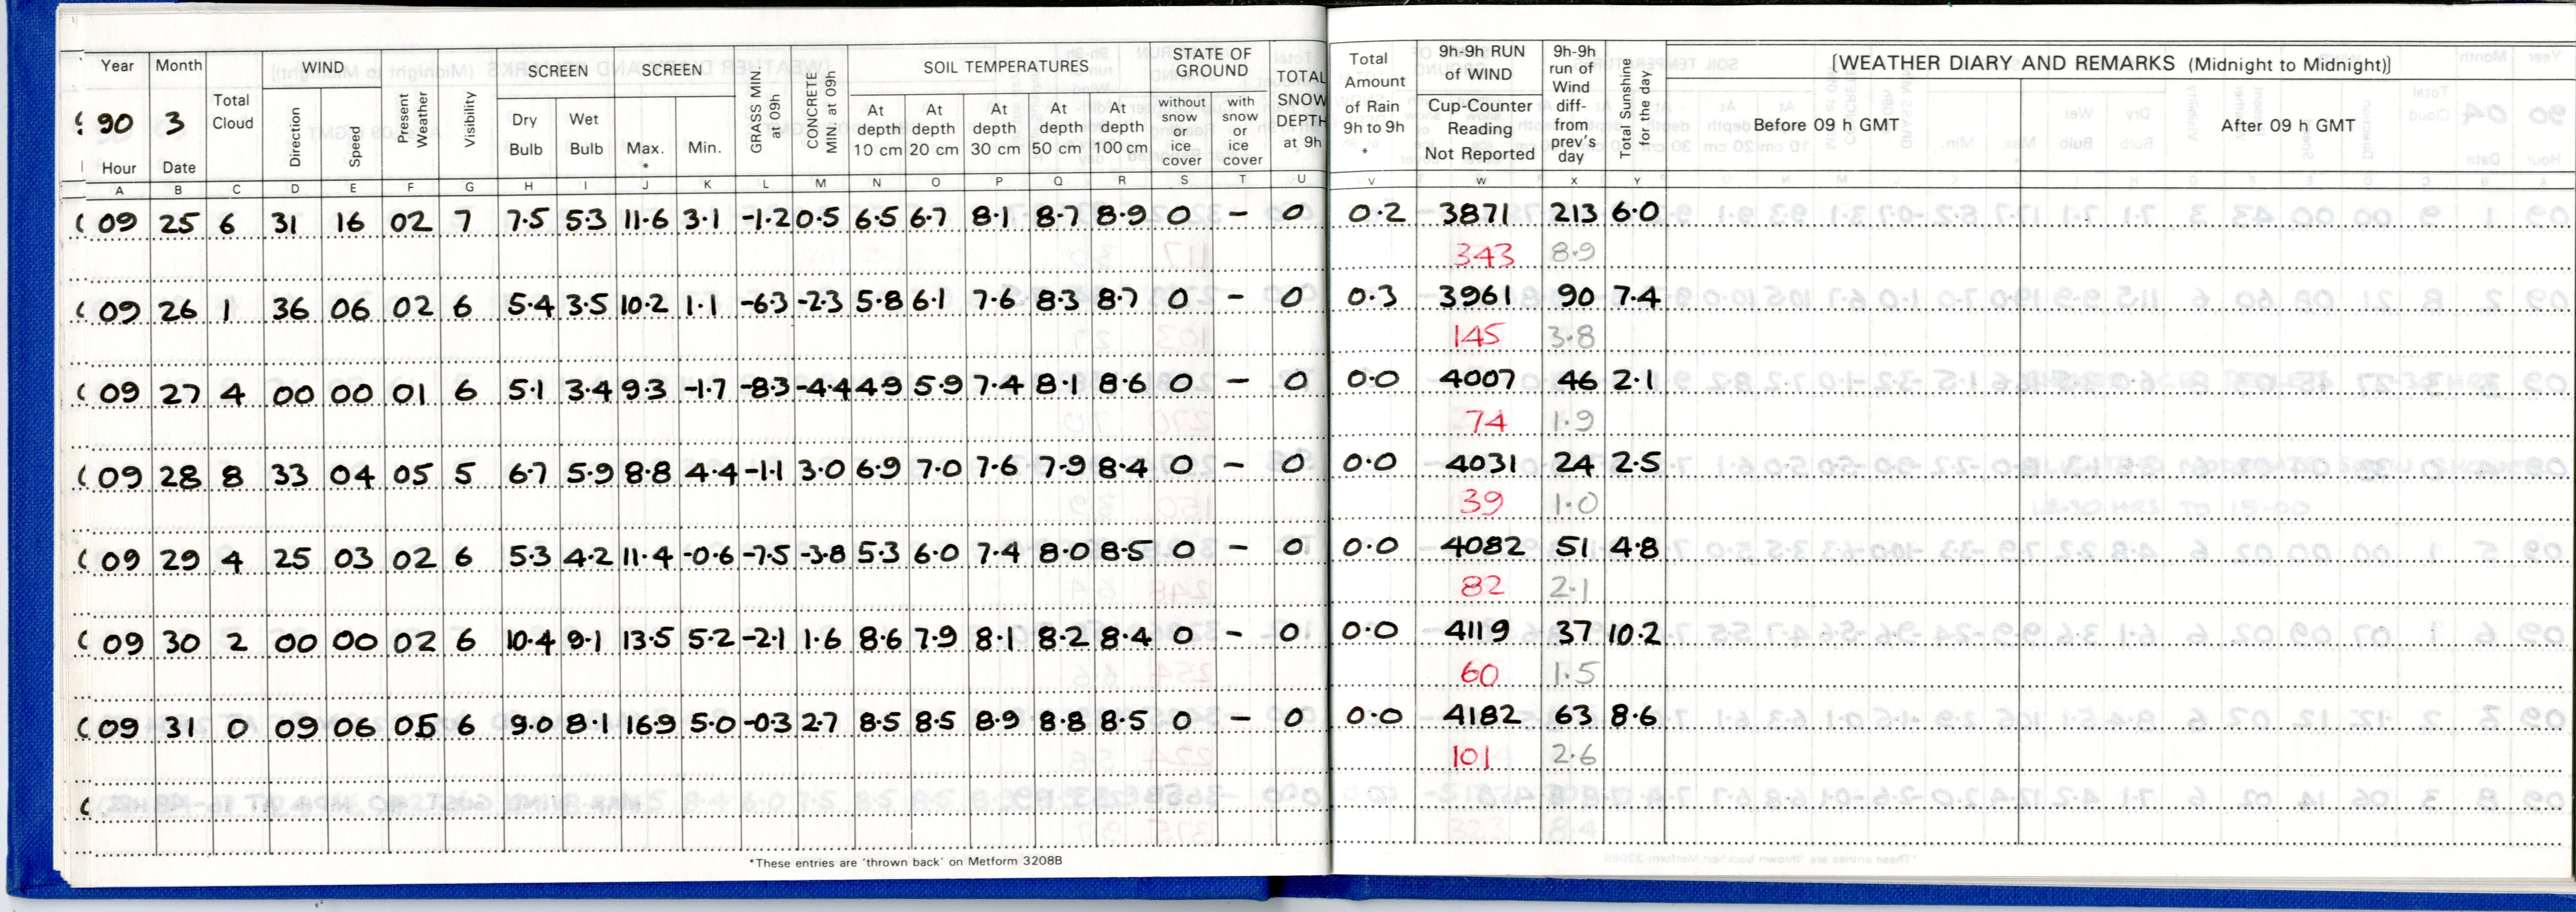 Year Month WIND SCREEN SCREEN SOIL TEMPERATURES STATE OF GROUND
90 3 Total Cloud Direction Speed Present Weather Visibility Dry Bulb Wet Bulb Max. * Min. GRASS MIN. at 09h CONCRETE MIN. at 09h At depth 10 cm At depth 20 cm At depth 30 cm At depth 50 cm At depth 100 cm without snow or ice cover with snow or ice cover TOTAL SNOW DEPTH at 9h Total Amount of Rain 9h to 9h * 9h-9h RUN of WIND Cup-Counter Reading Not Reported 9h-9h run of Wind diff- from prev's day Total Sunshine for the day [WEATHER DIARY AND REMARKS (Midnight to Midnight)]
Hour Date Before 09 h GMT After 09 h GMT
A B C D E F G H I J K L M N O P Q R S T U V W X Y
09 25 6 31 16 02 7 7.5 5.3 11.6 3.1 -1.2 0.5 6.5 6.7 8.1 8.7 8.9 0 - 0 0.2 3871 213 6.0
343 8.9
09 26 1 36 06 02 6 5.4 3.5 10.2 1.1 -6.3 -2.3 5.8 6.1 7.6 8.3 8.7 0 - 0 0.3 3961 90 7.4
145 3.8
09 27 4 00 00 01 6 5.1 3.4 9.3 -1.7 -8.3 -4.4 4.9 5.9 7.4 8.1 8.6 0 - 0 0.0 4007 46 2.1
74 1.9
09 28 8 33 04 05 5 6.7 5.9 8.8 4.4 -1.1 3.0 6.9 7.0 7.6 7.9 8.4 0 - 0 0.0 4031 24 2.5
39 1.0
09 29 4 25 03 02 6 5.3 4.2 11.4 -0.6 -7.5 -3.8 5.3 6.0 7.4 8.0 8.5 0 - 0 0.0 4082 51 4.8
82 2.1
09 30 2 00 00 02 6 10.4 9.1 13.5 5.2 -2.1 1.6 8.6 7.9 8.1 8.2 8.4 0 - 0 0.0 4119 37 10.2
60 1.5
09 31 0 09 06 05 6 9.0 8.1 16.9 5.0 -0.3 2.7 8.5 8.5 8.9 8.8 8.5 0 - 0 0.0 4182 63 8.6
101 2.6
*These entries are 'thrown back' on Metform 3208B